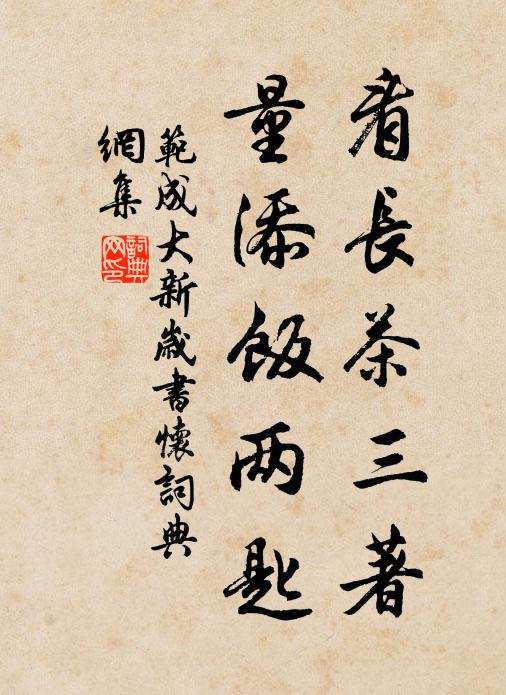 看长茶三著
量添飯两匙
範成大新歲書懷詞典
網集
詞典
网印